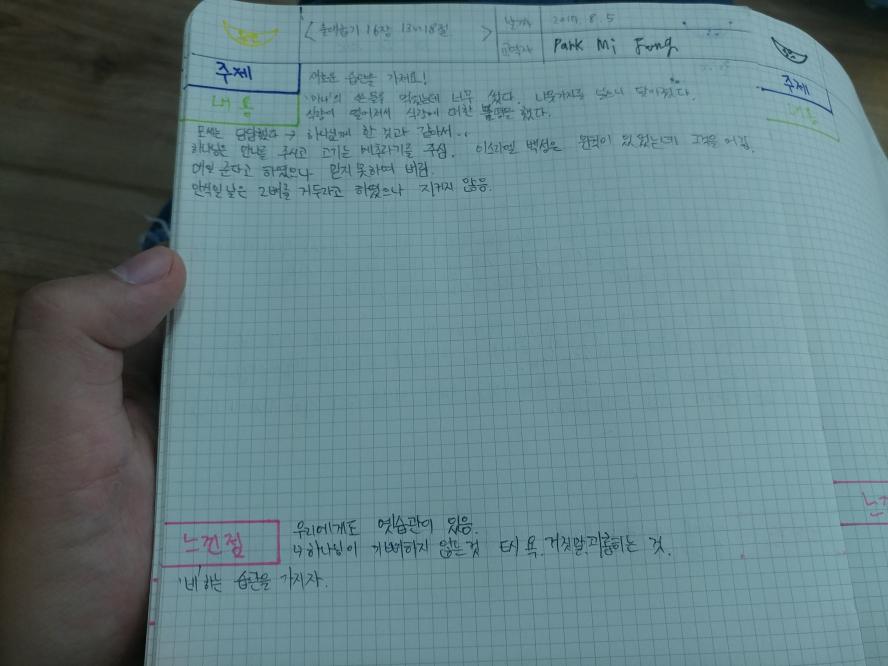 <출애굽기 16장 13~18절>
날짜 2019. 8. 5
Park Mi Fong
주제 새로운 습관을 가져요!
내용 '마라'의 쓴 물을 먹었는데 너무 썼다. 나뭇가지를 넣으니 달아졌다.
식량이 떨어져서 식량에 대한 불평을 했다.
모세는 답답했다 → 하나님께 한 것과 같아서..
하나님은 만나를 주시고 고기는 메추라기를 주심. 이스라엘 백성은 원칙이 있었는데 그것을 어김.
매일 준다고 하였으나 믿지 못하여 버림.
안식일 날은 2배를 거두라고 하였으나 지키지 않음.
주제
내용
느낀점 우리에게도 옛습관이 있음.
↳ 하나님이 기뻐하지 않는 것 욕, 거짓말, 괴롭히는 것.
하는 습관을 가지자.
느